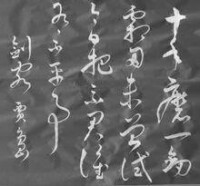 十年磨一劍
霜刃未曾試
今日把示君誰
有不平事
劍客 賈島